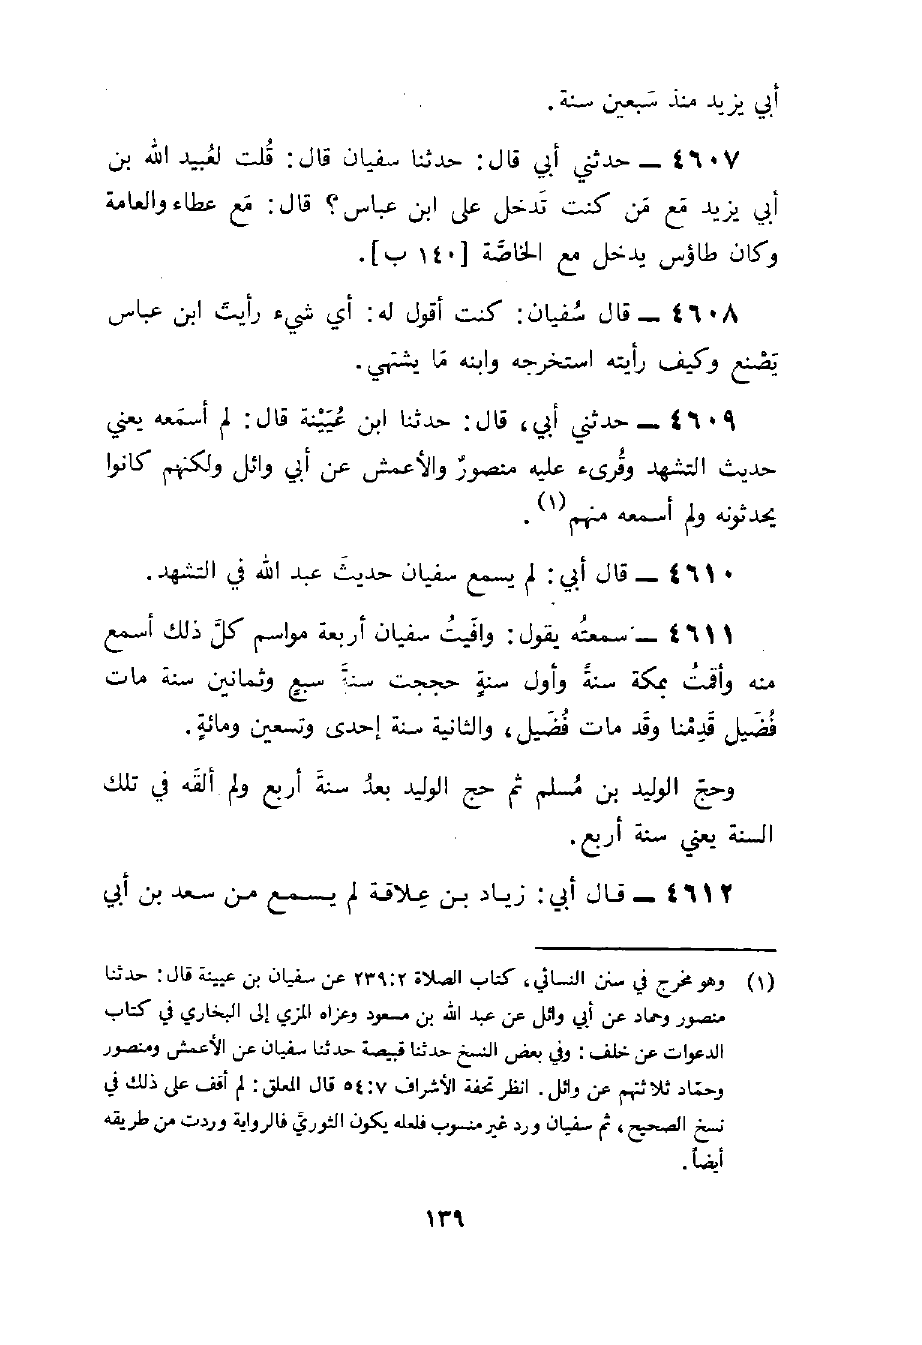 أبي يزيد منذ سَبعين سنة.
٤٦٠٧ ــ حدثني أبي قال: حدثنا سفيان قال: قُلت لعُبيد الله بن
أبي يزيد مَع مَن كنت تَدخل على ابن عباس؟ قال: مَع عطاء والعامة
وكان طاؤس يدخل مع الخاصَّة [١٤٠ ب].
٤٦٠٨ ــ قال سُفيان: كنت أقول له: أي شيء رأيتَ ابن عباس
يَصْنع وكيف رأيته استخرجه وابنه مَا يشتهي.
٤٦٠٩ ــ حدثني أبي، قال: حدثنا ابن عُيَيْنة قال: لم أسمَعه يعني
حديث التشهد وقُرىء عليه منصورٌ والأعمش عن أبي وائل ولكنهم كانوا
يحدثونه ولم أسمعه منهم(١).
٤٦١٠ ــ قال أبي: لم يسمع سفيان حديثَ عبد الله في التشهد.
٤٦١١ ــ سمعتُه يقول: وافَيتُ سفيان أربعة مواسم كلَّ ذلك أسمع
منه وأقمتُ بمكة سنةً وأول سنةٍ حججت سنةَ سبعٍ وثمانين سنة مات
فُضَيل قَدِمْنا وقَد مات فُضَيل، والثانية سنة إحدى وتسعين ومائةٍ.
وحجّ الوليد بن مُسلم ثم حج الوليد بعدُ سنةَ أربع ولم ألقَه في تلك
السنة يعني سنة أربع.
٤٦١٢ ــ قال أبي: زياد بن عِلاقة لم يسمع من سعد بن أبي
(١) وهو مخرج في سنن النسائي، كتاب الصلاة ٢٣٩:٢ عن سفيان بن عيينة قال: حدثنا
منصور وحماد عن أبي وائل عن عبد الله بن مسعود وعزاه المزي إلى البخاري في كتاب
الدعوات عن خلف: وفي بعض النسخ حدثنا قبيصة حدثنا سفيان عن الأعمش ومنصور
وحمّاد ثلاثتهم عن وائل. انظر تحفة الأشراف ٥٤:٧ قال المعلق: لم أقف على ذلك في
نسخ الصحيح، ثم سفيان ورد غير منسوب فلعله يكون الثوريَّ فالرواية وردت من طريقه
أيضاً.
١٣٩